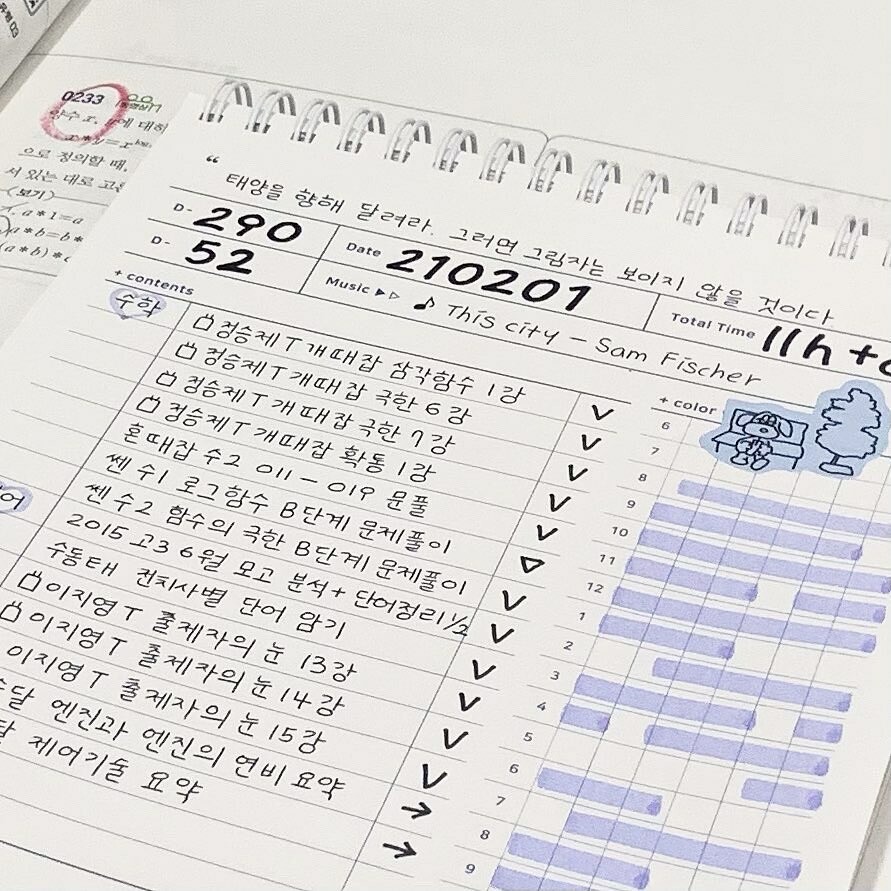 0233
양수 x, 에 대하
으로 정의할 때,
서 있는 대로 고른
<보기>
a*1=a
a*b=b*
(a*b)*
“
태양을 향해 달려라. 그러면 그림자는 보이지 않을 것이다
D- 290 Date 210201 Total Time 11h+
D- 52 Music ▶▷ ♪ This city - Sam Fischer
+ contents
+ color
수학
정승제T 개때잡 삼각함수 1강 V
정승제T 개때잡 극한 6강 V
정승제T 개때잡 극한 7강 V
정승제T 개때잡 확통 1강 V
혼때잡 수2 011-019 문풀 V
쎈 수1 로그함수 B단계 문제풀이 ▽
쎈 수2 함수의 극한 B단계 문제풀이 V
2015 고3 6월 모고 분석+단어정리 1/2 V
수동태 전치사별 단어 암기 V
이지영T 출제자의 눈 13강 V
이지영T 출제자의 눈 14강 V
이지영T 출제자의 눈 15강 V
엔진과 엔진의 연비 요약 →
제어기술 요약 →
6
7
8
9
10
11
12
1
2
3
4
5
6
7
8
9